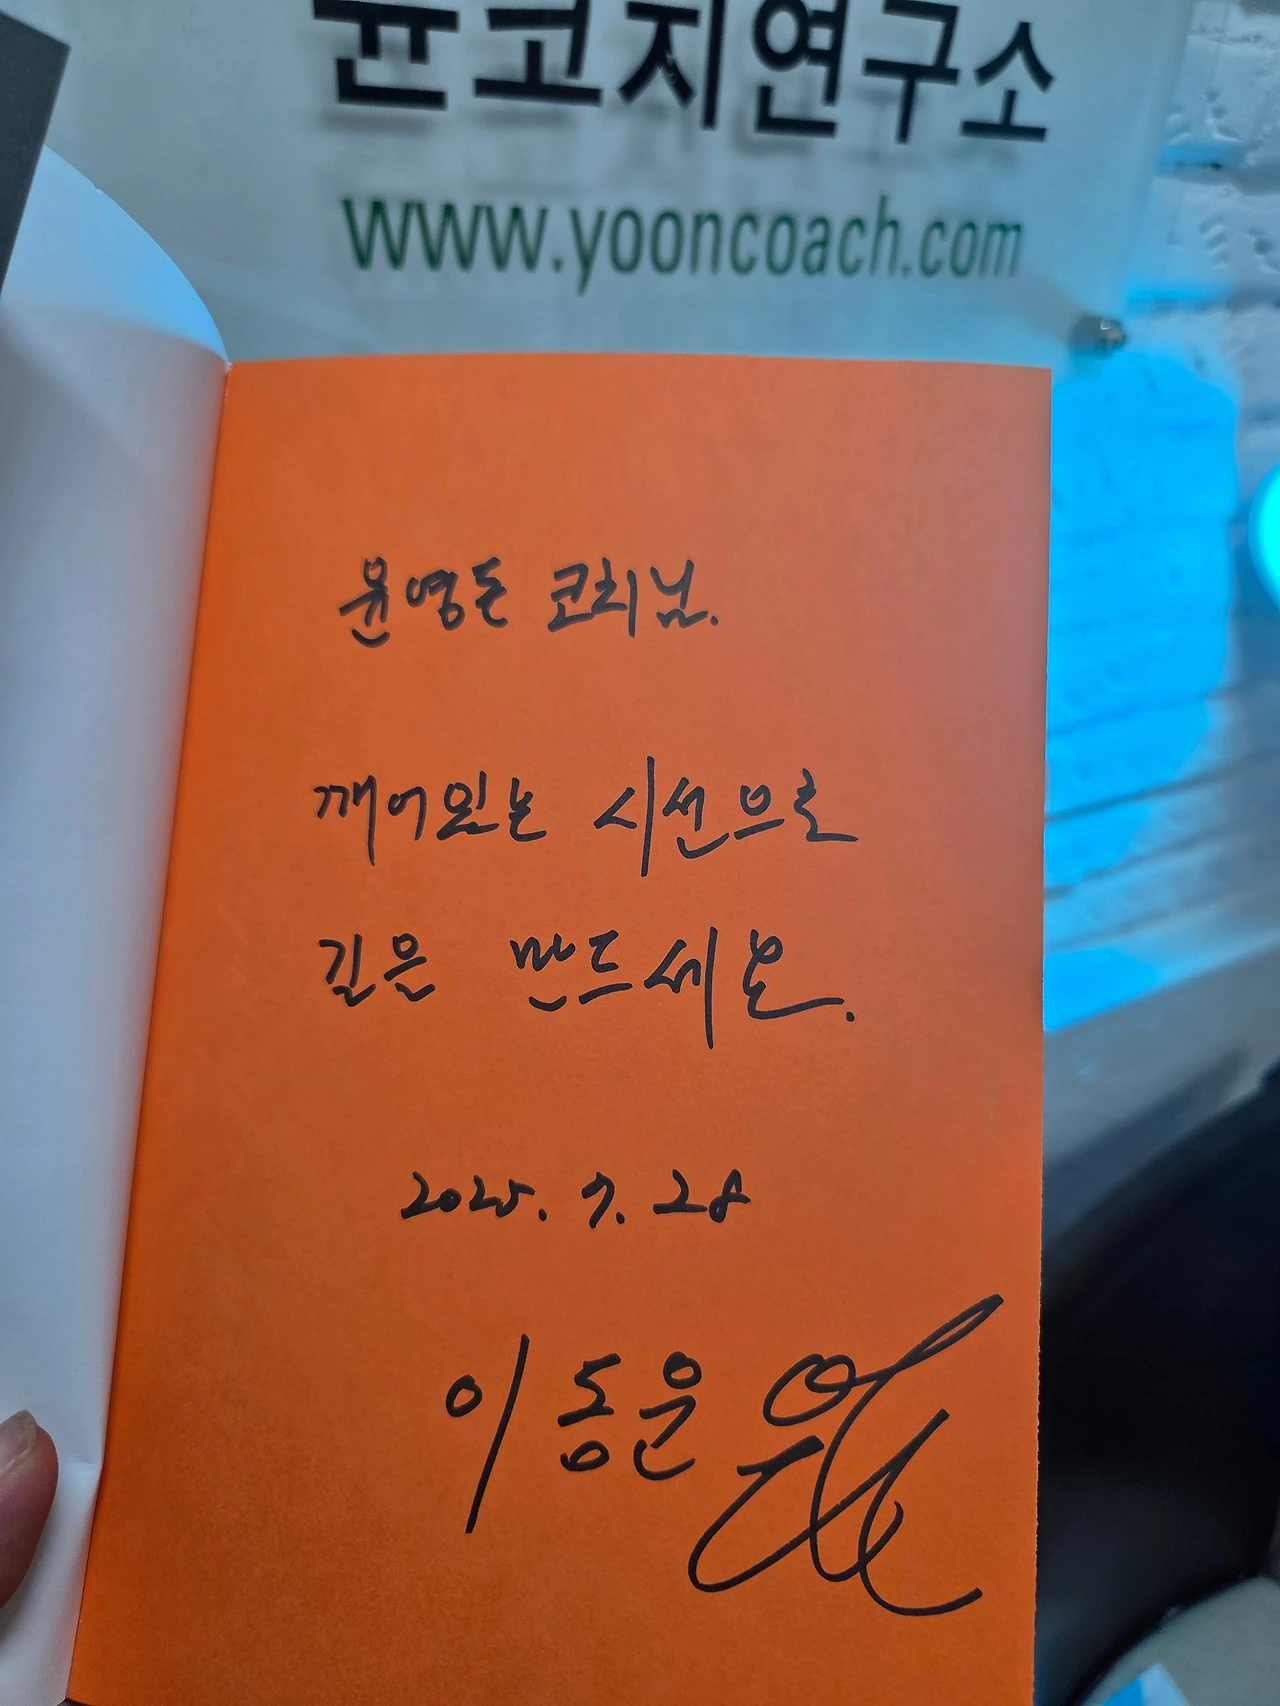 윤코치연구소
www.yooncoach.com
윤영돈 코치님.
깨어있는 시선으로
길은 만드세요.
2025. 7. 28
이동운